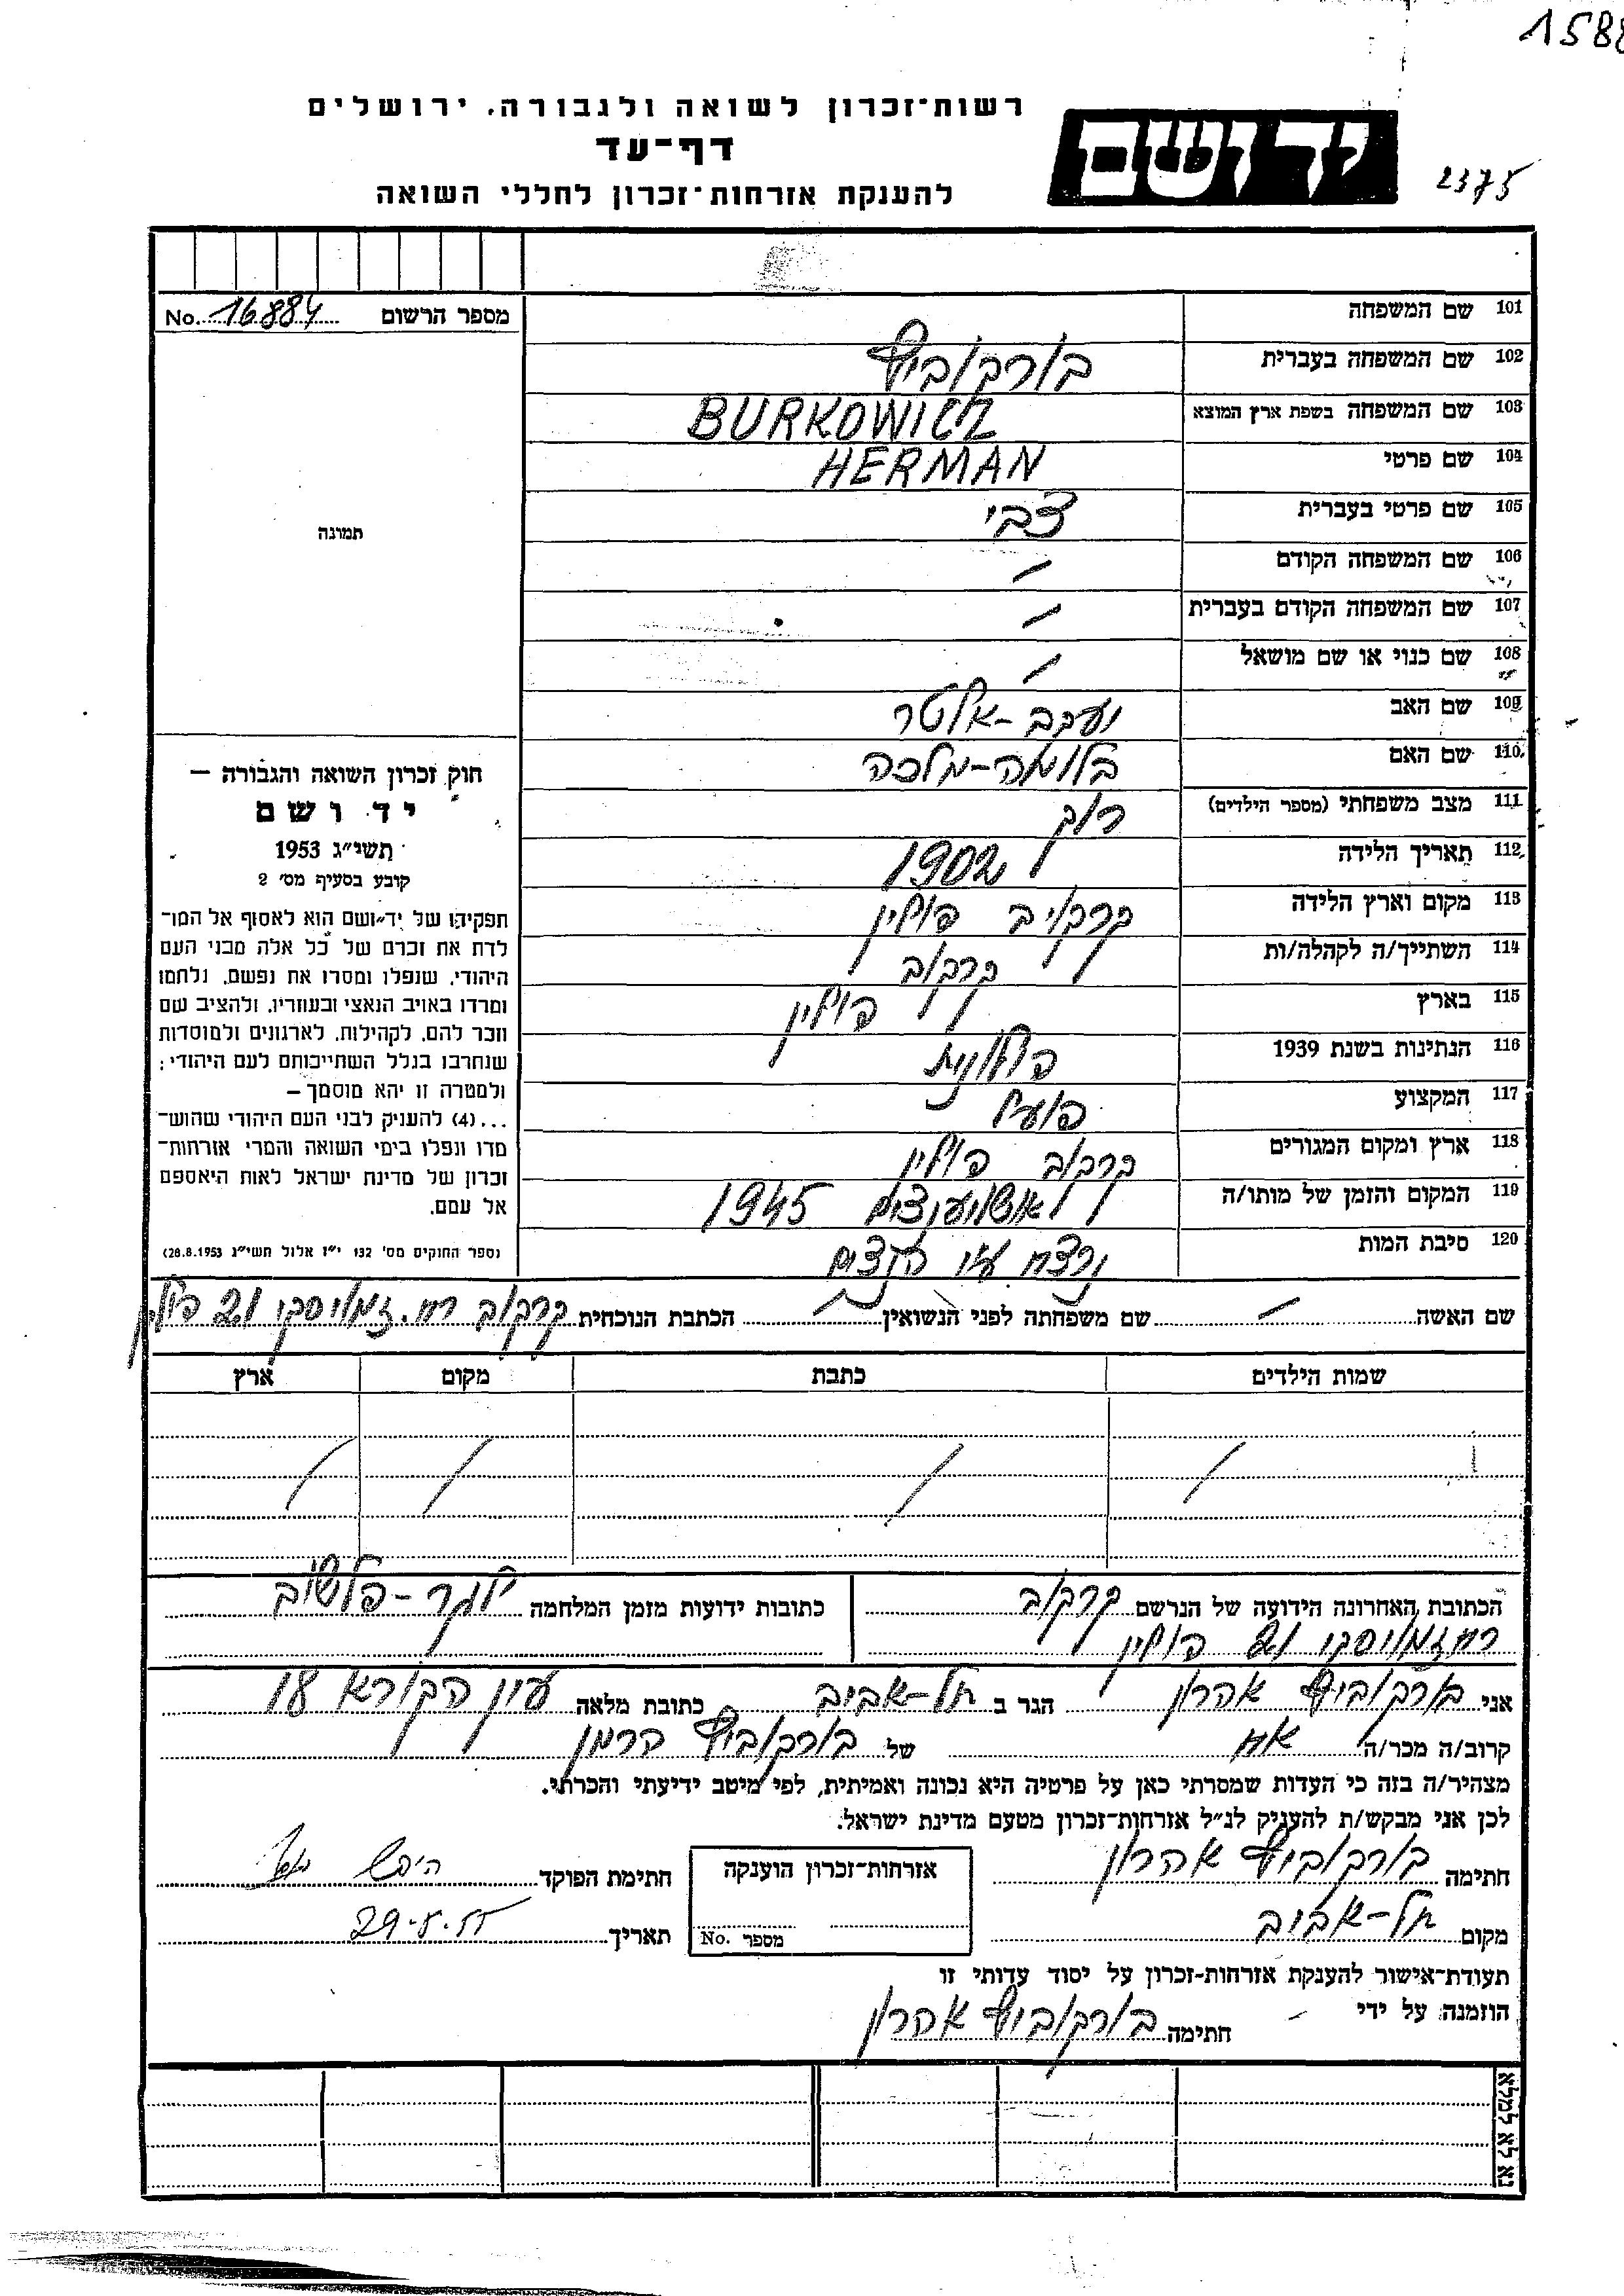 1588
רשות־זכרון לשואה ולגבורה, ירושלים
דף־עד
להענקת אזרחות־זכרון לחללי השואה
יד ושם
2375
מספר הרשום No. 16884
תמונה
101 שם המשפחה
102 שם המשפחה בעברית בורקוביץ
103 שם המשפחה בשפת ארץ המוצא BURKOWICZ
104 שם פרטי HERMAN
105 שם פרטי בעברית צבי
106 שם המשפחה הקודם /
107 שם המשפחה הקודם בעברית /
108 שם כנוי או שם מושאל /
109 שם האב יעקב-אלטר
110 שם האם בלומה-מלכה
111 מצב משפחתי (מספר הילדים) רוק
112 תאריך הלידה 1902
113 מקום וארץ הלידה קרקוב פולין
114 השתייך/ה לקהלה/ות קרקוב
115 בארץ פולין
116 הנתינות בשנת 1939 פולנית
117 המקצוע פועל
118 ארץ ומקום המגורים קרקוב פולין
119 המקום והזמן של מותו/ה אושוענצים 1945
120 סיבת המות נרצח ע״י הנצים
חוק זכרון השואה והגבורה —
יד ושם
תשי״ג 1953
קובע בסעיף מס' 2
תפקידו של יד־ושם הוא לאסוף אל המו־
לדת את זכרם של כל אלה מבני העם
היהודי, שנפלו ומסרו את נפשם, נלחמו
ומרדו באויב הנאצי ובעוזריו, ולהציב שם
וזכר להם, לקהילות, לארגונים ולמוסדות
שנחרבו בגלל השתייכותם לעם היהודי;
ולמטרה זו יהא מוסמך—
...(4) להעניק לבני העם היהודי שהוש־
מדו ונפלו בימי השואה והמרי אזרחות־
זכרון של מדינת ישראל לאות היאספם
אל עמם.
(ספר החוקים מס' 132 י״ז אלול תשי״ג 28.8.1953)
שם האשה / שם משפחתה לפני הנשואין / הכתבת הנוכחית קרקוב רח. זמויסקי 21 פולין
שמות הילדים כתבת מקום ארץ
/ / / /
הכתובת האחרונה הידועה של הנרשם קרקוב
רח זמויסקי 21 פולין
כתובות ידועות מזמן המלחמה לגר-פלשוב
אני בורקוביץ אהרון הגר ב תל-אביב כתובת מלאה עין הקורא 18
קרוב/ה מכר/ה אח של בורקוביץ הרמן
מצהיר/ה בזה כי העדות שמסרתי כאן על פרטיה היא נכונה ואמיתית, לפי מיטב ידיעתי והכרתי.
לכן אני מבקש/ת להעניק לנ״ל אזרחות־זכרון מטעם מדינת ישראל.
חתימה בורקוביץ אהרון
אזרחות־זכרון הוענקה
מספר No.
חתימת הפוקד
מקום תל-אביב
תאריך 29.5.55
תעודת־אישור להענקת אזרחות־זכרון על יסוד עדותי זו
הוזמנה על ידי חתימה בורקוביץ אהרון
נא לא למלא